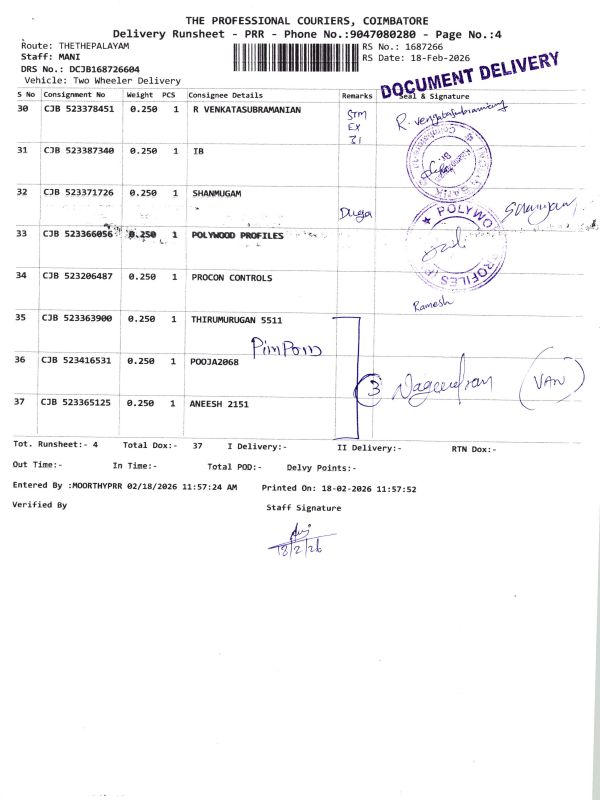 THE PROFESSIONAL COURIERS, COIMBATORE
Delivery Runsheet - PRR - Phone No.:9047080280 - Page No.:4
Route: THETHEPALAYAM
Staff: MANI
DRS No.: DCJB168726604
Vehicle: Two Wheeler Delivery
RS No.: 1687266
RS Date: 18-Feb-2026
DOCUMENT DELIVERY
S No Consignment No Weight PCS Consignee Details Remarks Seal & Signature
30 CJB 523378451 0.250 1 R VENKATASUBRAMANIAN
31 CJB 523387340 0.250 1 IB
32 CJB 523371726 0.250 1 SHANMUGAM
POLYWO
33 CJB 523366056 0.250 1 POLYWOOD PROFILES
34 CJB 523206487 0.250 1 PROCON CONTROLS
Ramesh
35 CJB 523363900 0.250 1 THIRUMURUGAN 5511
36 CJB 523416531 0.250 1 POOJA2068
3 (VAN)
37 CJB 523365125 0.250 1 ANEESH 2151
Tot. Runsheet:- 4 Total Dox:- 37 I Delivery:- II Delivery:- RTN Dox:-
Out Time:- In Time:- Total POD:- Delvy Points:-
Entered By :MOORTHYPRR 02/18/2026 11:57:24 AM Printed On: 18-02-2026 11:57:52
Verified By Staff Signature
18/2/26